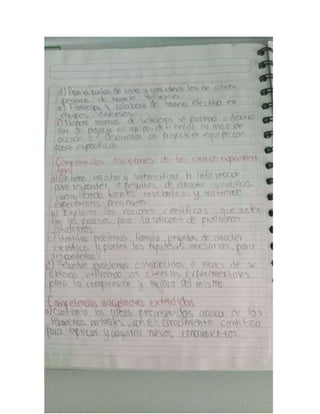 d) Aporta puntos de vista y considera los de otras
personas de manera reflexiva
e) Participa y colabora de manera efectiva en
equipos diversos
f) Propone maneras de solucionar un problema o desarro
llar un proyecto en equipo, definiendo un curso de
acción
pasos específicos.
Competencias disciplinares de las ciencias experimen
tales
a) Obtiene, registra y sistematiza la información
para responder a preguntas de carácter científico
consultando fuentes relevantes y realizando
experimentos pertinentes
b) Explicita las nociones científicas que susten
tan los procesos para la solución de problemas
cotidianos
c) Identifica problemas, formula preguntas de carácter
científico y plantea las hipótesis necesarias para
responderlos
d) Resuelve problemas establecidos o reales de su
entorno, utilizando las ciencias experimentales
para la comprensión y mejora del mismo.
Competencias disciplinares extendidas
a) Confronta las ideas preconcebidas acerca de los
fenómenos naturales con el conocimiento científico
para explicar y adquirir nuevos conocimientos